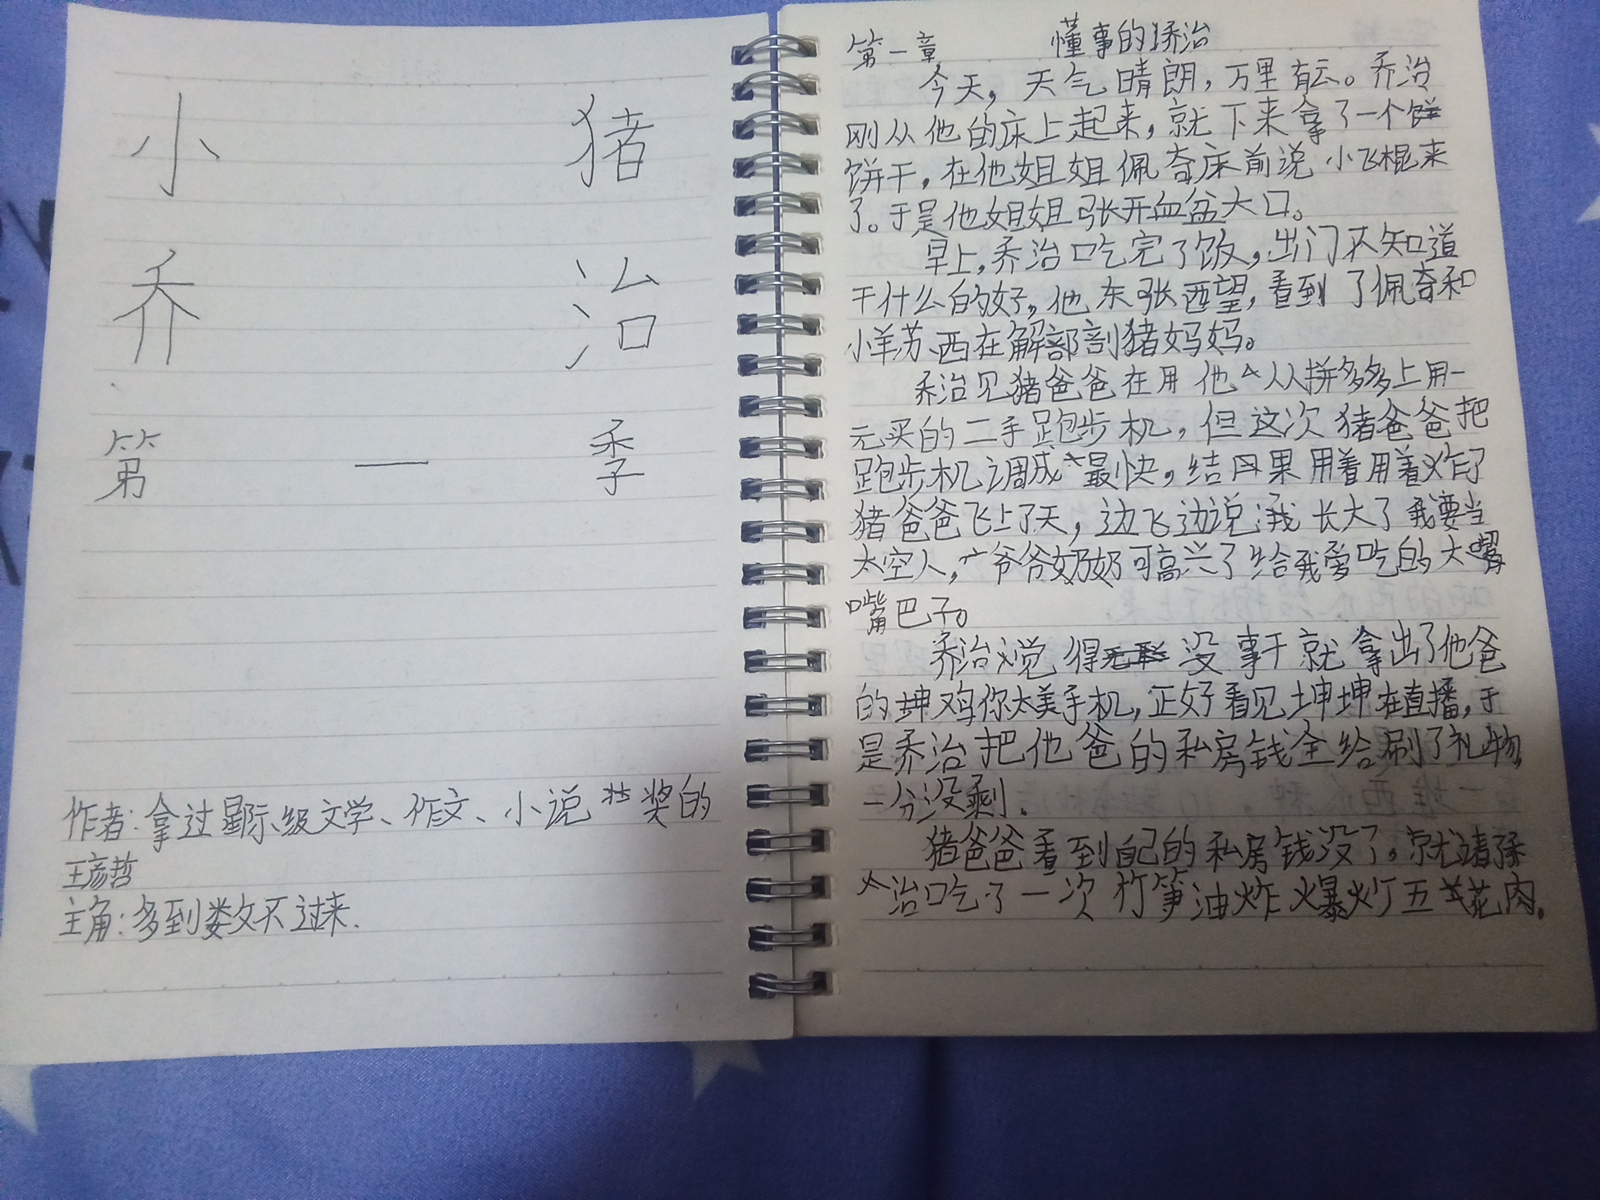 小 猪
乔 治
第 一 季
作者:拿过县际级文学、作文、小说 奖的
王彦哲
主角:多到数不过来.
第一章 懂事的乔治
今天,天气晴朗,万里有云。乔治
刚从他的床上起来,就下来拿了一个
饼干,在他姐姐佩奇床前说小飞棍来
了。于是他姐姐张开血盆大口。
早上,乔治吃完了饭,出门不知道
干什么的好,他东张西望,看到了佩奇和
小羊苏西在解剖猪妈妈。
乔治见猪爸爸在用他从拼多多上用一
元买的二手跑步机,但这次猪爸爸把
跑步机调成最快,结果用着用着炸了
猪爸爸飞上了天,边飞边说:我长大了我要当
太空人,爷爷奶奶可高兴了给我爱吃的大嘴
嘴巴子。
乔治觉得没事干就拿出了他爸
的坤鸡你太美手机,正好看见坤坤在直播,于
是乔治把他爸的私房钱全给刷了礼物
一分没剩.
猪爸爸看到自己的私房钱没了,就请乔
治吃了一次竹笋油炸爆炒五花肉。